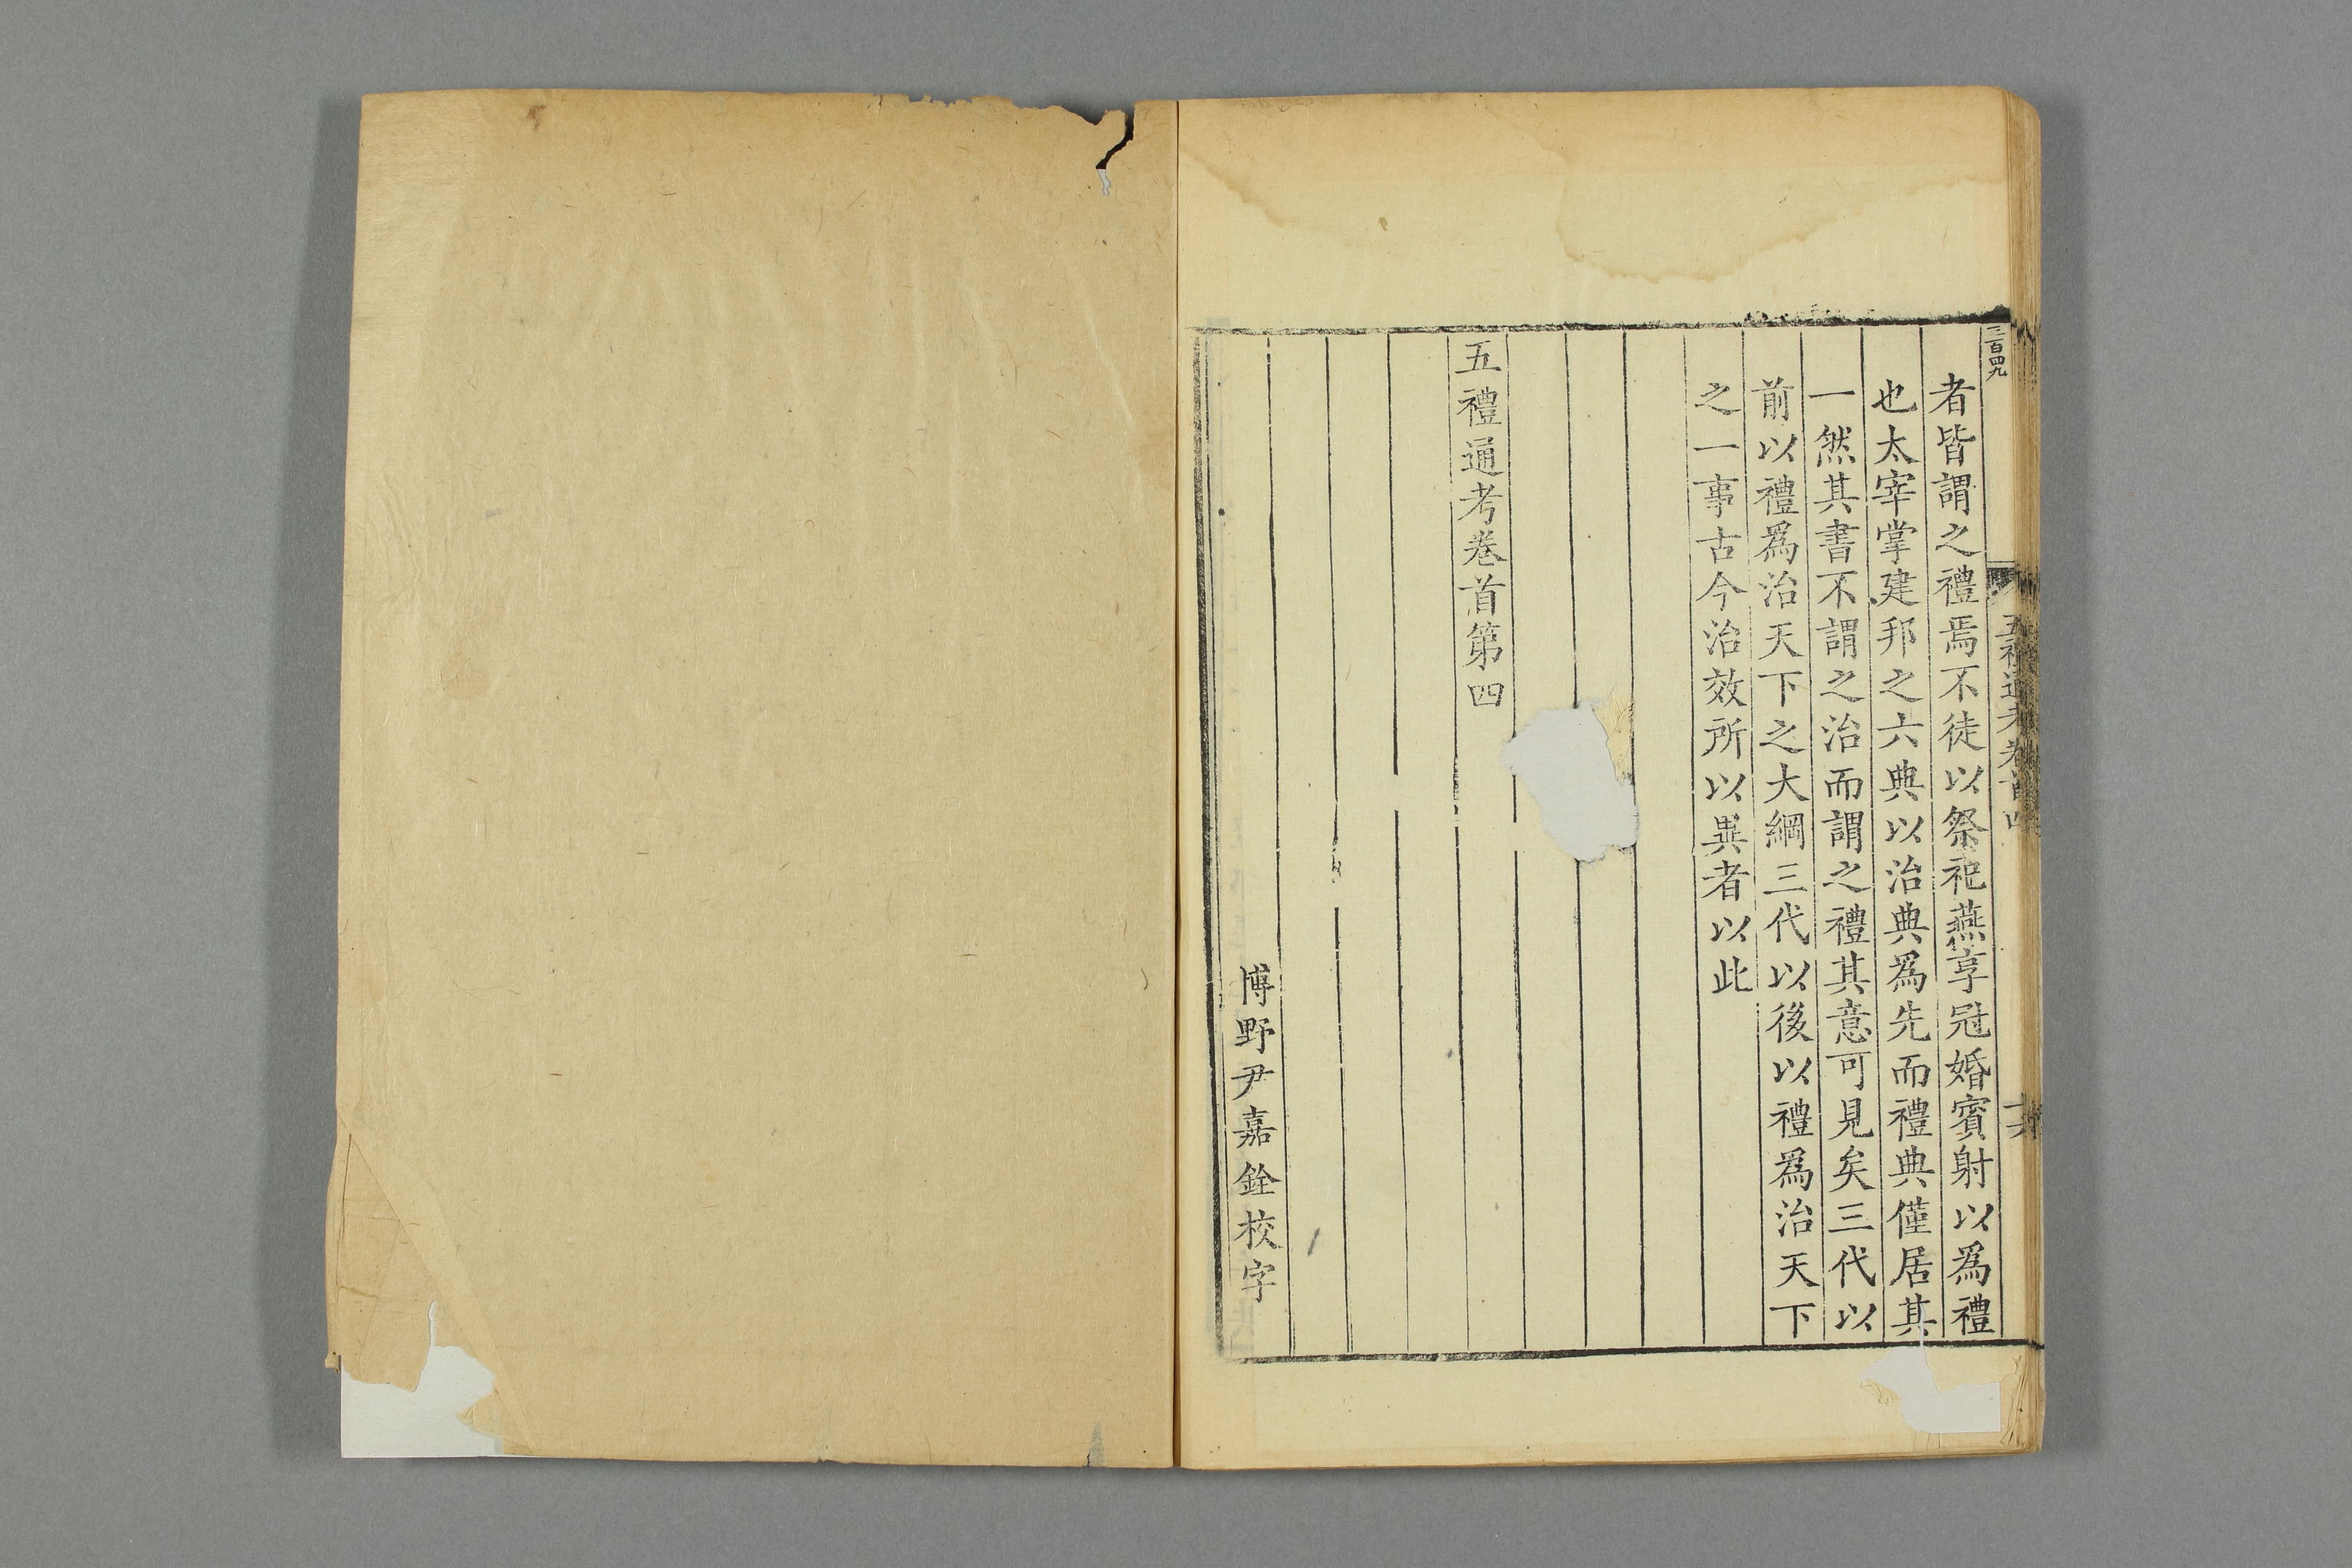 三百四九
五禮通考卷首四
者皆謂之禮焉不徒以祭祀燕享冠婚賓射以爲禮
也太宰掌建邦之六典以治典爲先而禮典僅居其
一然其書不謂之治而謂之禮其意可見矣三代以
前以禮爲治天下之大綱三代以後以禮爲治天下
之一事古今治效所以異者以此
五禮通考卷首第四
博野尹嘉銓校字